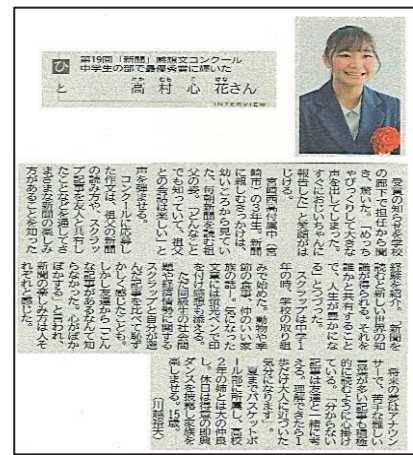 第19回「新聞」感想文コンクール
中学生の部で最優秀賞に輝いた
ひと
高村心花さん
INTERVIEW
受賞の知らせを学校
の廊下で担任から聞
き、驚いた。「めっち
ゃびっくりして大きな
声を出してしまった。
すぐにおじいちゃんに
報告した」と笑顔がは
じける。
宮崎西高付属中(宮
崎市)の3年生。新聞
に親しむきっかけは、
幼いころから見てい
た、毎朝新聞を読む祖
父の姿。「どんなこと
でも知っていて、祖父
との会話は楽しい」と
声を弾ませる。
コンクールに応募し
た作文は、祖父の新聞
の読み方や、スクラッ
プ記事を友人と共有し
たことなどを通してさ
まざまな新聞の楽しみ
方があることを知った
経験を紹介。「新聞を
読むと新しい世界の知
識を得られる。それを
誰かと共有すること
で、人生が豊かにな
る」とつづった。
スクラップは中学1
年の時、学校の取り組
みで始めた。動物や季
節の食事、仲のいい家
族の話―。気になった
文章には蛍光ペンで印
を付け感想も添える。
ただ同級生の社会問
題や経済情勢に関する
スクラップと自分が選
んだ記事を比べて恥ず
かしく感じたことも。
しかし友達から「こん
な記事があるなんて知
らなかった。心がぽか
ぽかする」と言われ、
新聞の楽しみ方は人そ
れぞれと感じた。
将来の夢はアナウン
サーで、苦手な難しい
言葉が多い記事も積極
的に読むように心掛け
ている。「分からない
記事は友達と一緒に考
える。理解できたら1
歩だけ大人に近づいた
気分になります」。
夏までバスケットボ
ール部に所属し、高校
2年の姉とは大の仲良
し。休日は得意の即興
ダンスを披露し家族を
楽しませる。15歳。